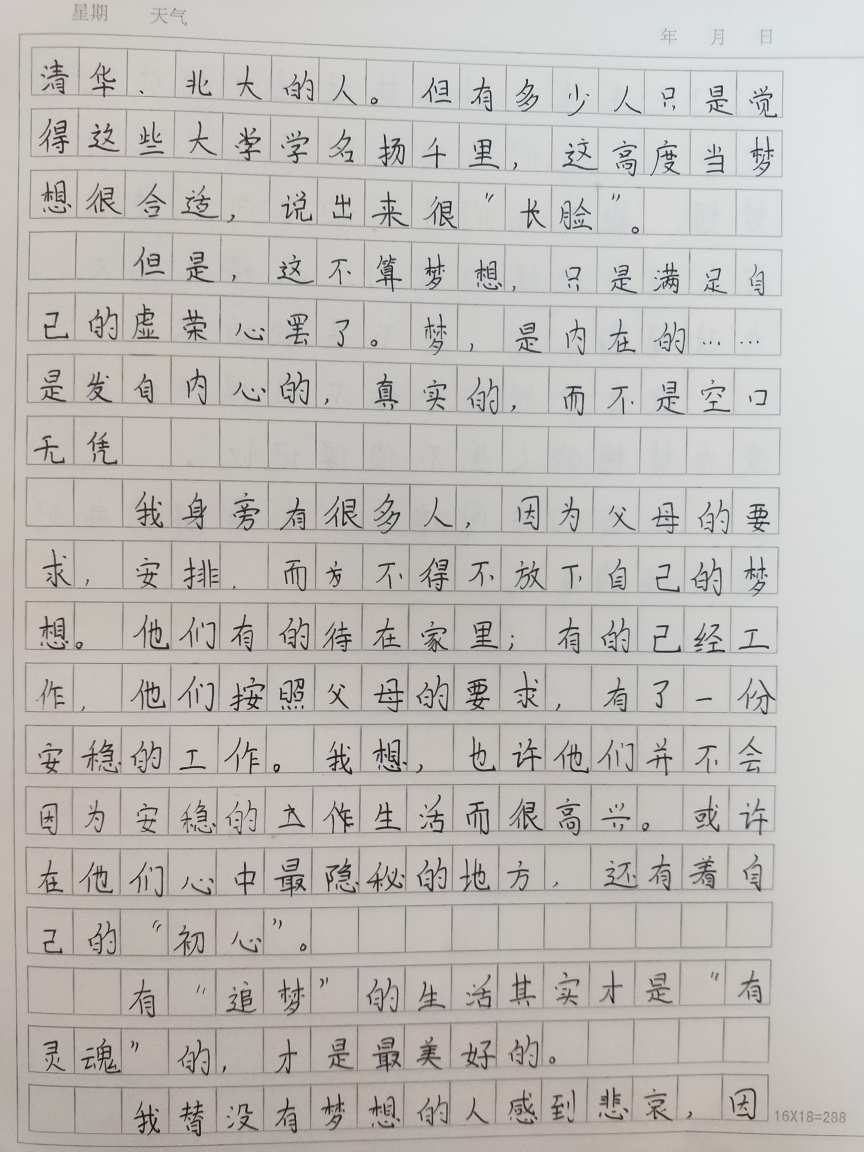 星期 天气
年 月 日
清华、北大的人。但有多少人只是觉
得这些大学学名扬千里，这高度当梦
想很合适，说出来很“长脸”。
但是，这不算梦想，只是满足自
己的虚荣心罢了。梦，是内在的……
是发自内心的，真实的，而不是空口
无凭
我身旁有很多人，因为父母的要
求，安排，而方不得不放下自己的梦
想。他们有的待在家里；有的已经工
作，他们按照父母的要求，有了一份
安稳的工作。我想，也许他们并不会
因为安稳的工作生活而很高兴。或许
在他们心中最隐秘的地方，还有着自
己的“初心”。
有“追梦”的生活其实才是“有
灵魂”的，才是最美好的。
我替没有梦想的人感到悲哀，因
16X18=288